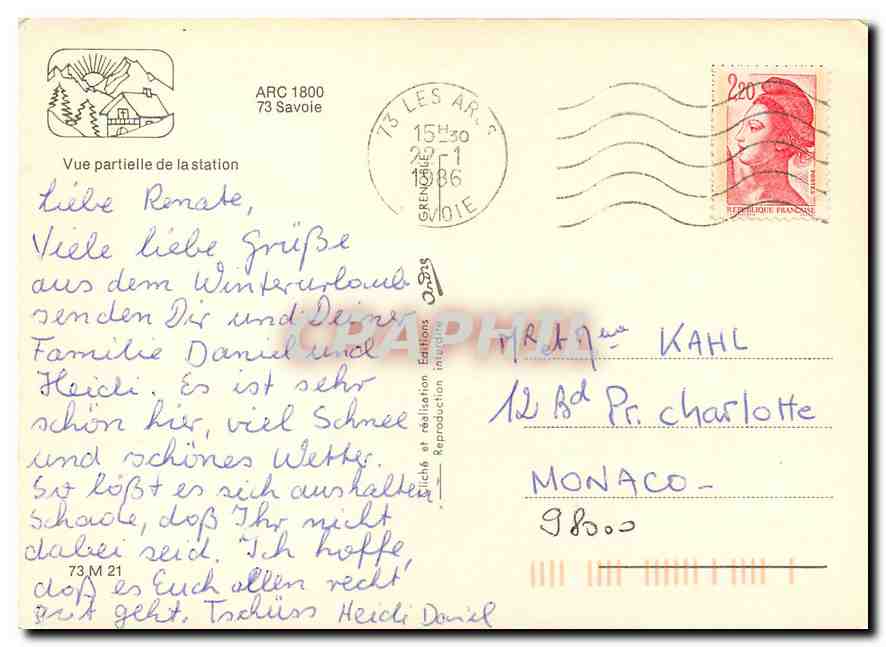 ARC 1800
73 Savoie
Vue partielle de la station
73 LES ARCS
15H30
22-1
1986
SAVOIE
GRENOBLE
2,20
REPUBLIQUE FRANÇAISE
Liebe Renate,
Viele liebe Grüße
aus dem Winterurlaub
senden Dir und Deiner
Familie Daniel und
Heidi. Es ist sehr
schön hier, viel Schnee
und schönes Wetter.
So läßt es sich aushalten
Schade, daß Ihr nicht
dabei seid. Ich hoffe,
daß es Euch allen recht
gut geht. Tschüss Heidi Daniel
73 M 21
Cliché et réalisation Editions
Reproduction interdite
andré
CPAPHIL
Mr et Mme KAHL
12 Bd Pr. Charlotte
MONACO -
98000